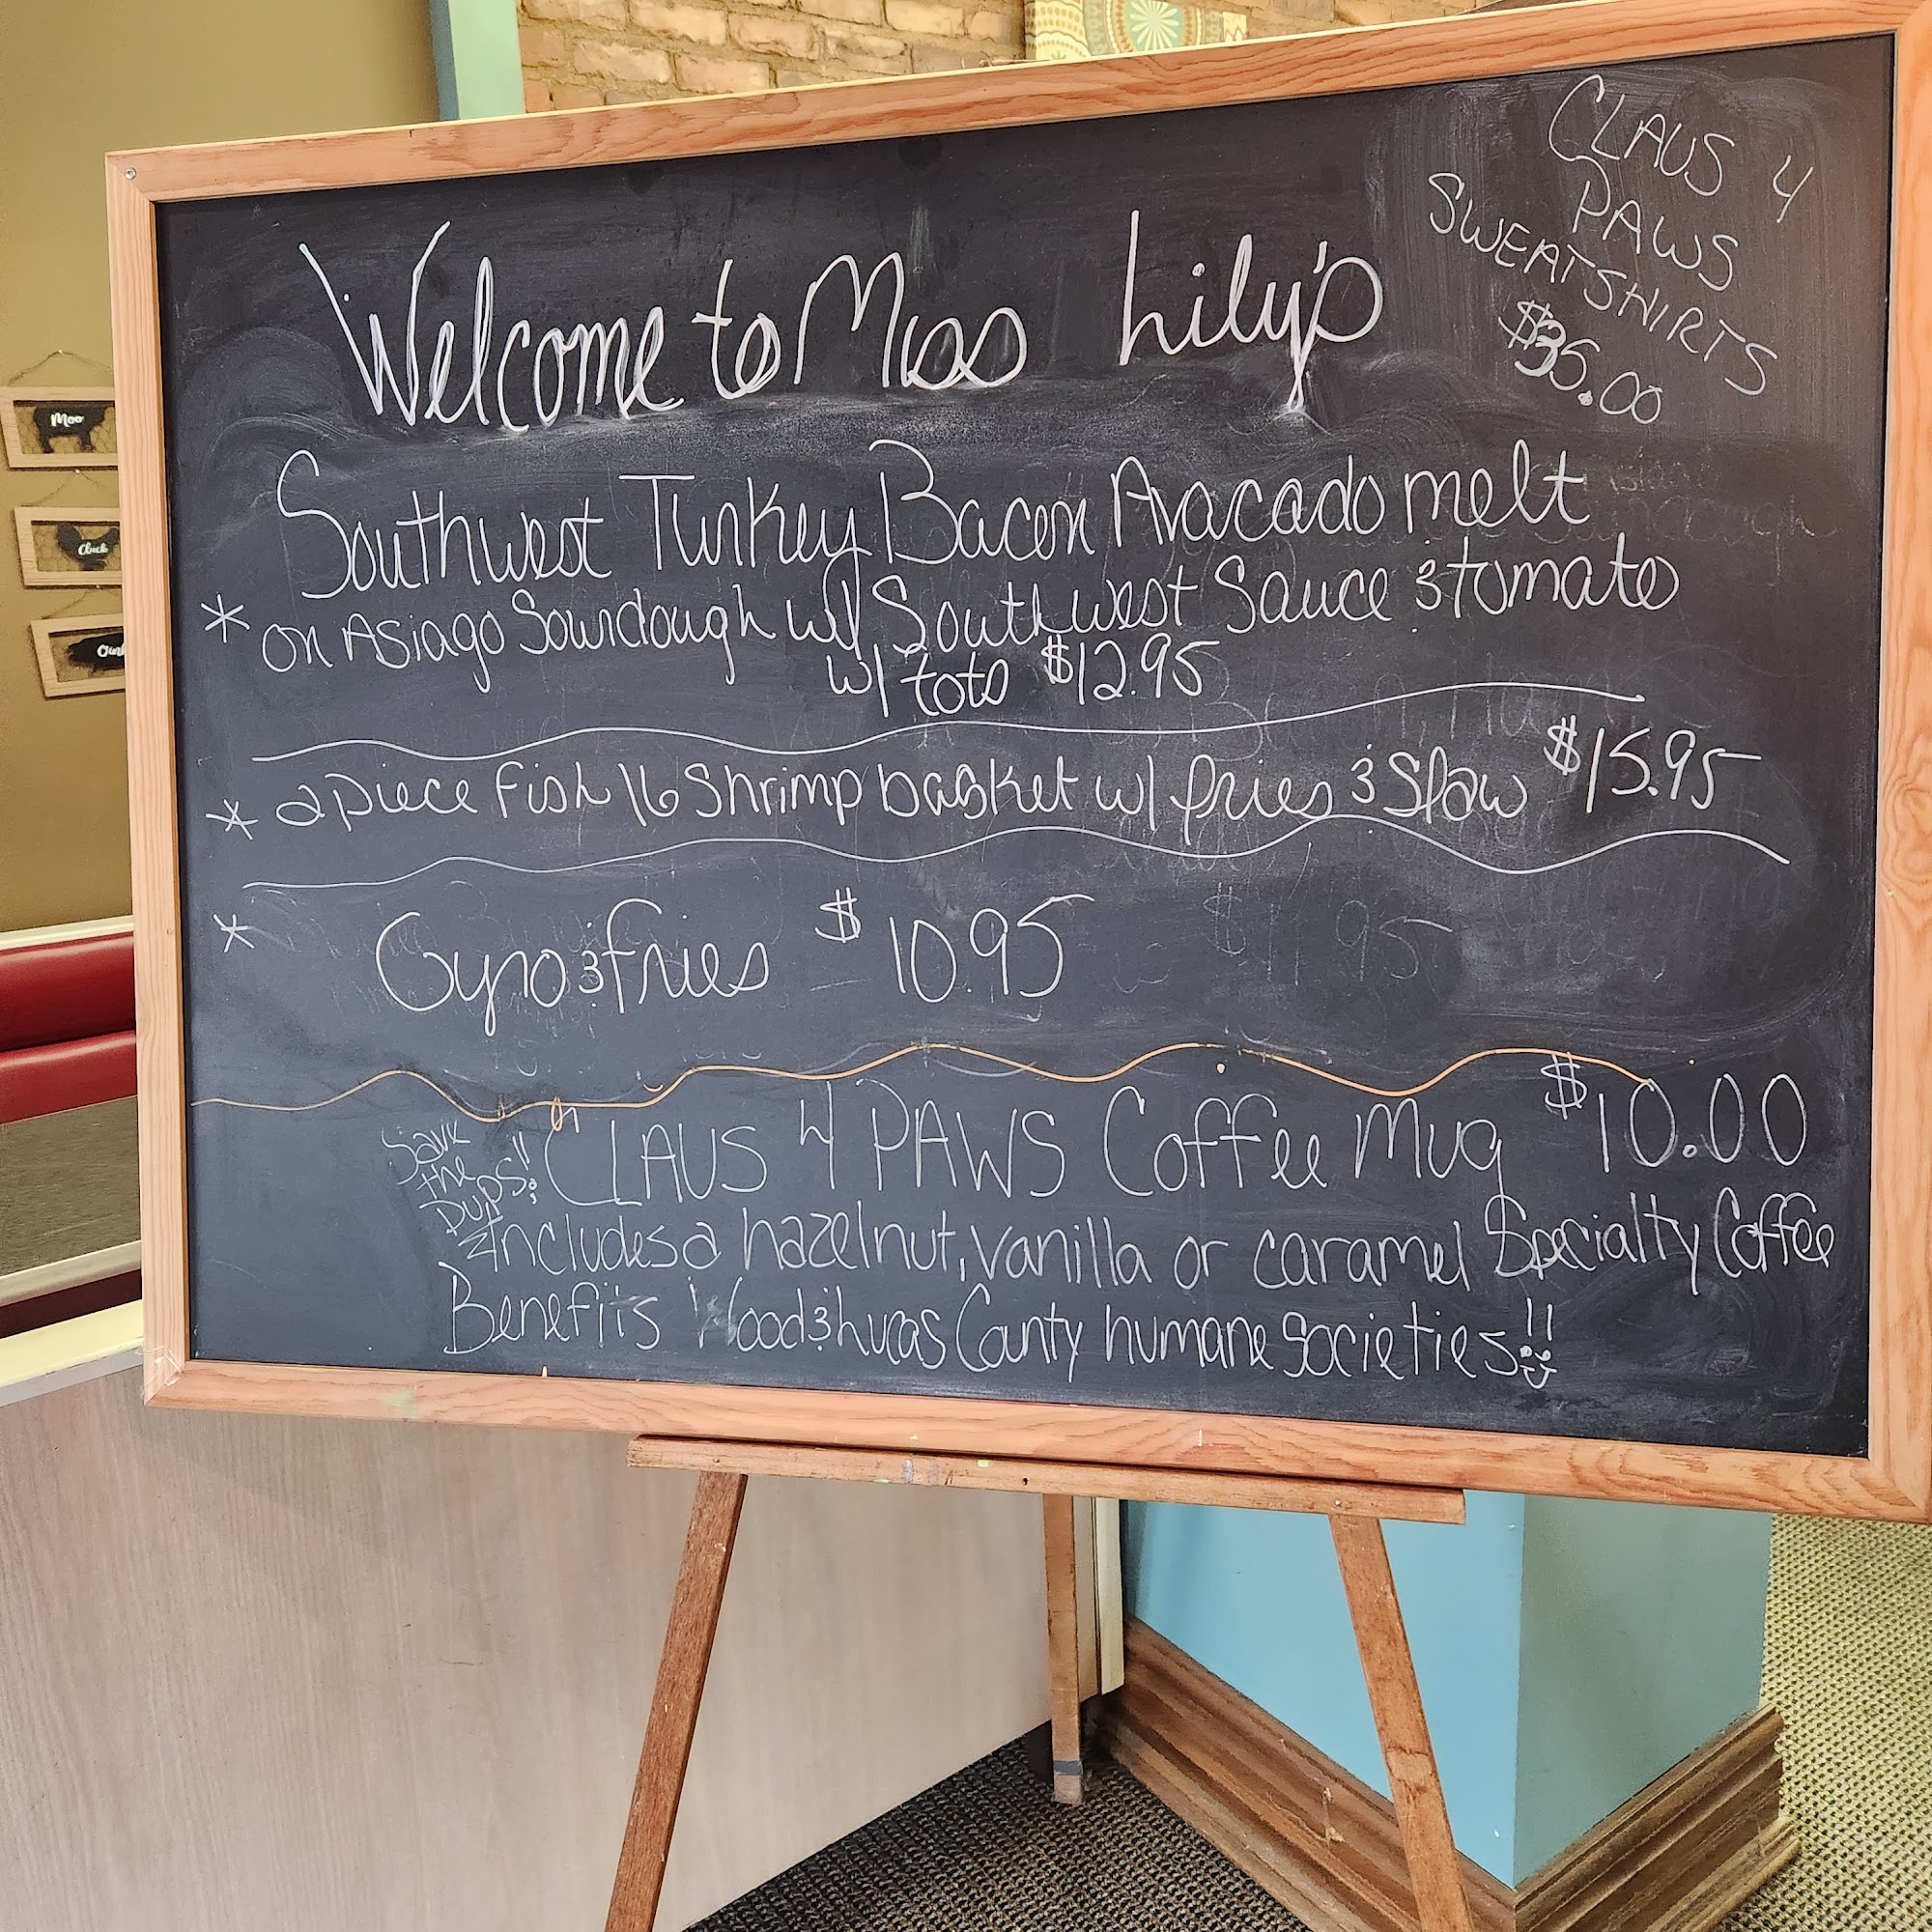 CLAUS 4
PAWS
SWEATSHIRTS
$35.00
Welcome to Miss Lily's
Southwest Turkey Bacon Avacado melt
* on Asiago Sourdough w/ Southwest Sauce & tomato
w/ tots $12.95
* 2 piece Fish / 6 Shrimp basket w/ fries & Slaw $15.95
* Gyro & fries $10.95
Save
the
Pups!!
CLAUS 4 PAWS Coffee Mug $10.00
Includes a hazelnut, vanilla or caramel Specialty Coffee
Benefits Wood & Lucas County humane societies!!
Moo
Cluck
Oink